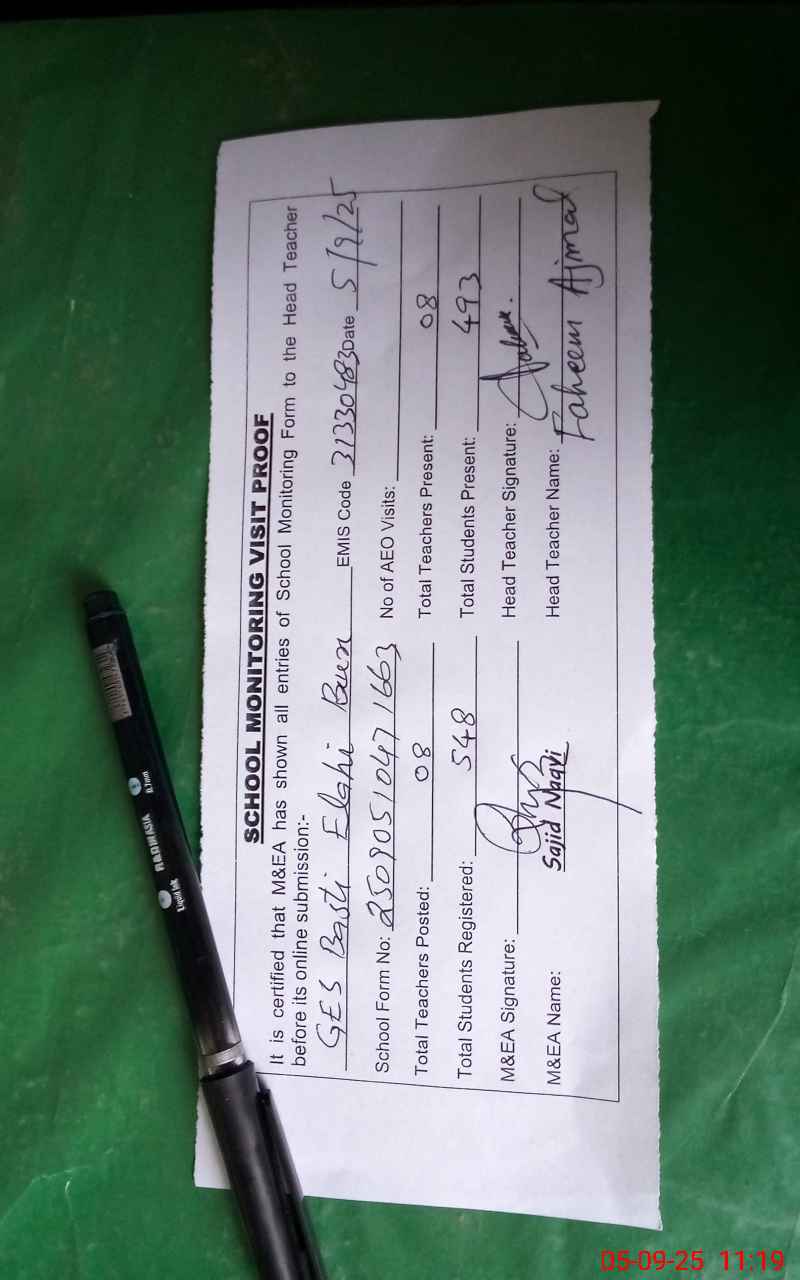 SCHOOL MONITORING VISIT PROOF
It is certified that M&EA has shown all entries of School Monitoring Form to the Head Teacher
before its online submission:-
GES Basti Elahi Bux EMIS Code 31330483 Date 5/9/25
School Form No: 2509051047 1663 No of AEO Visits:
Total Teachers Posted: 08 Total Teachers Present: 08
Total Students Registered: 548 Total Students Present: 493
M&EA Signature: Head Teacher Signature:
M&EA Name: Sajid Naqvi Head Teacher Name: Faheem Ajmal
RADIWASIA
Liquid Ink 0.7mm
05-09-25 11:19